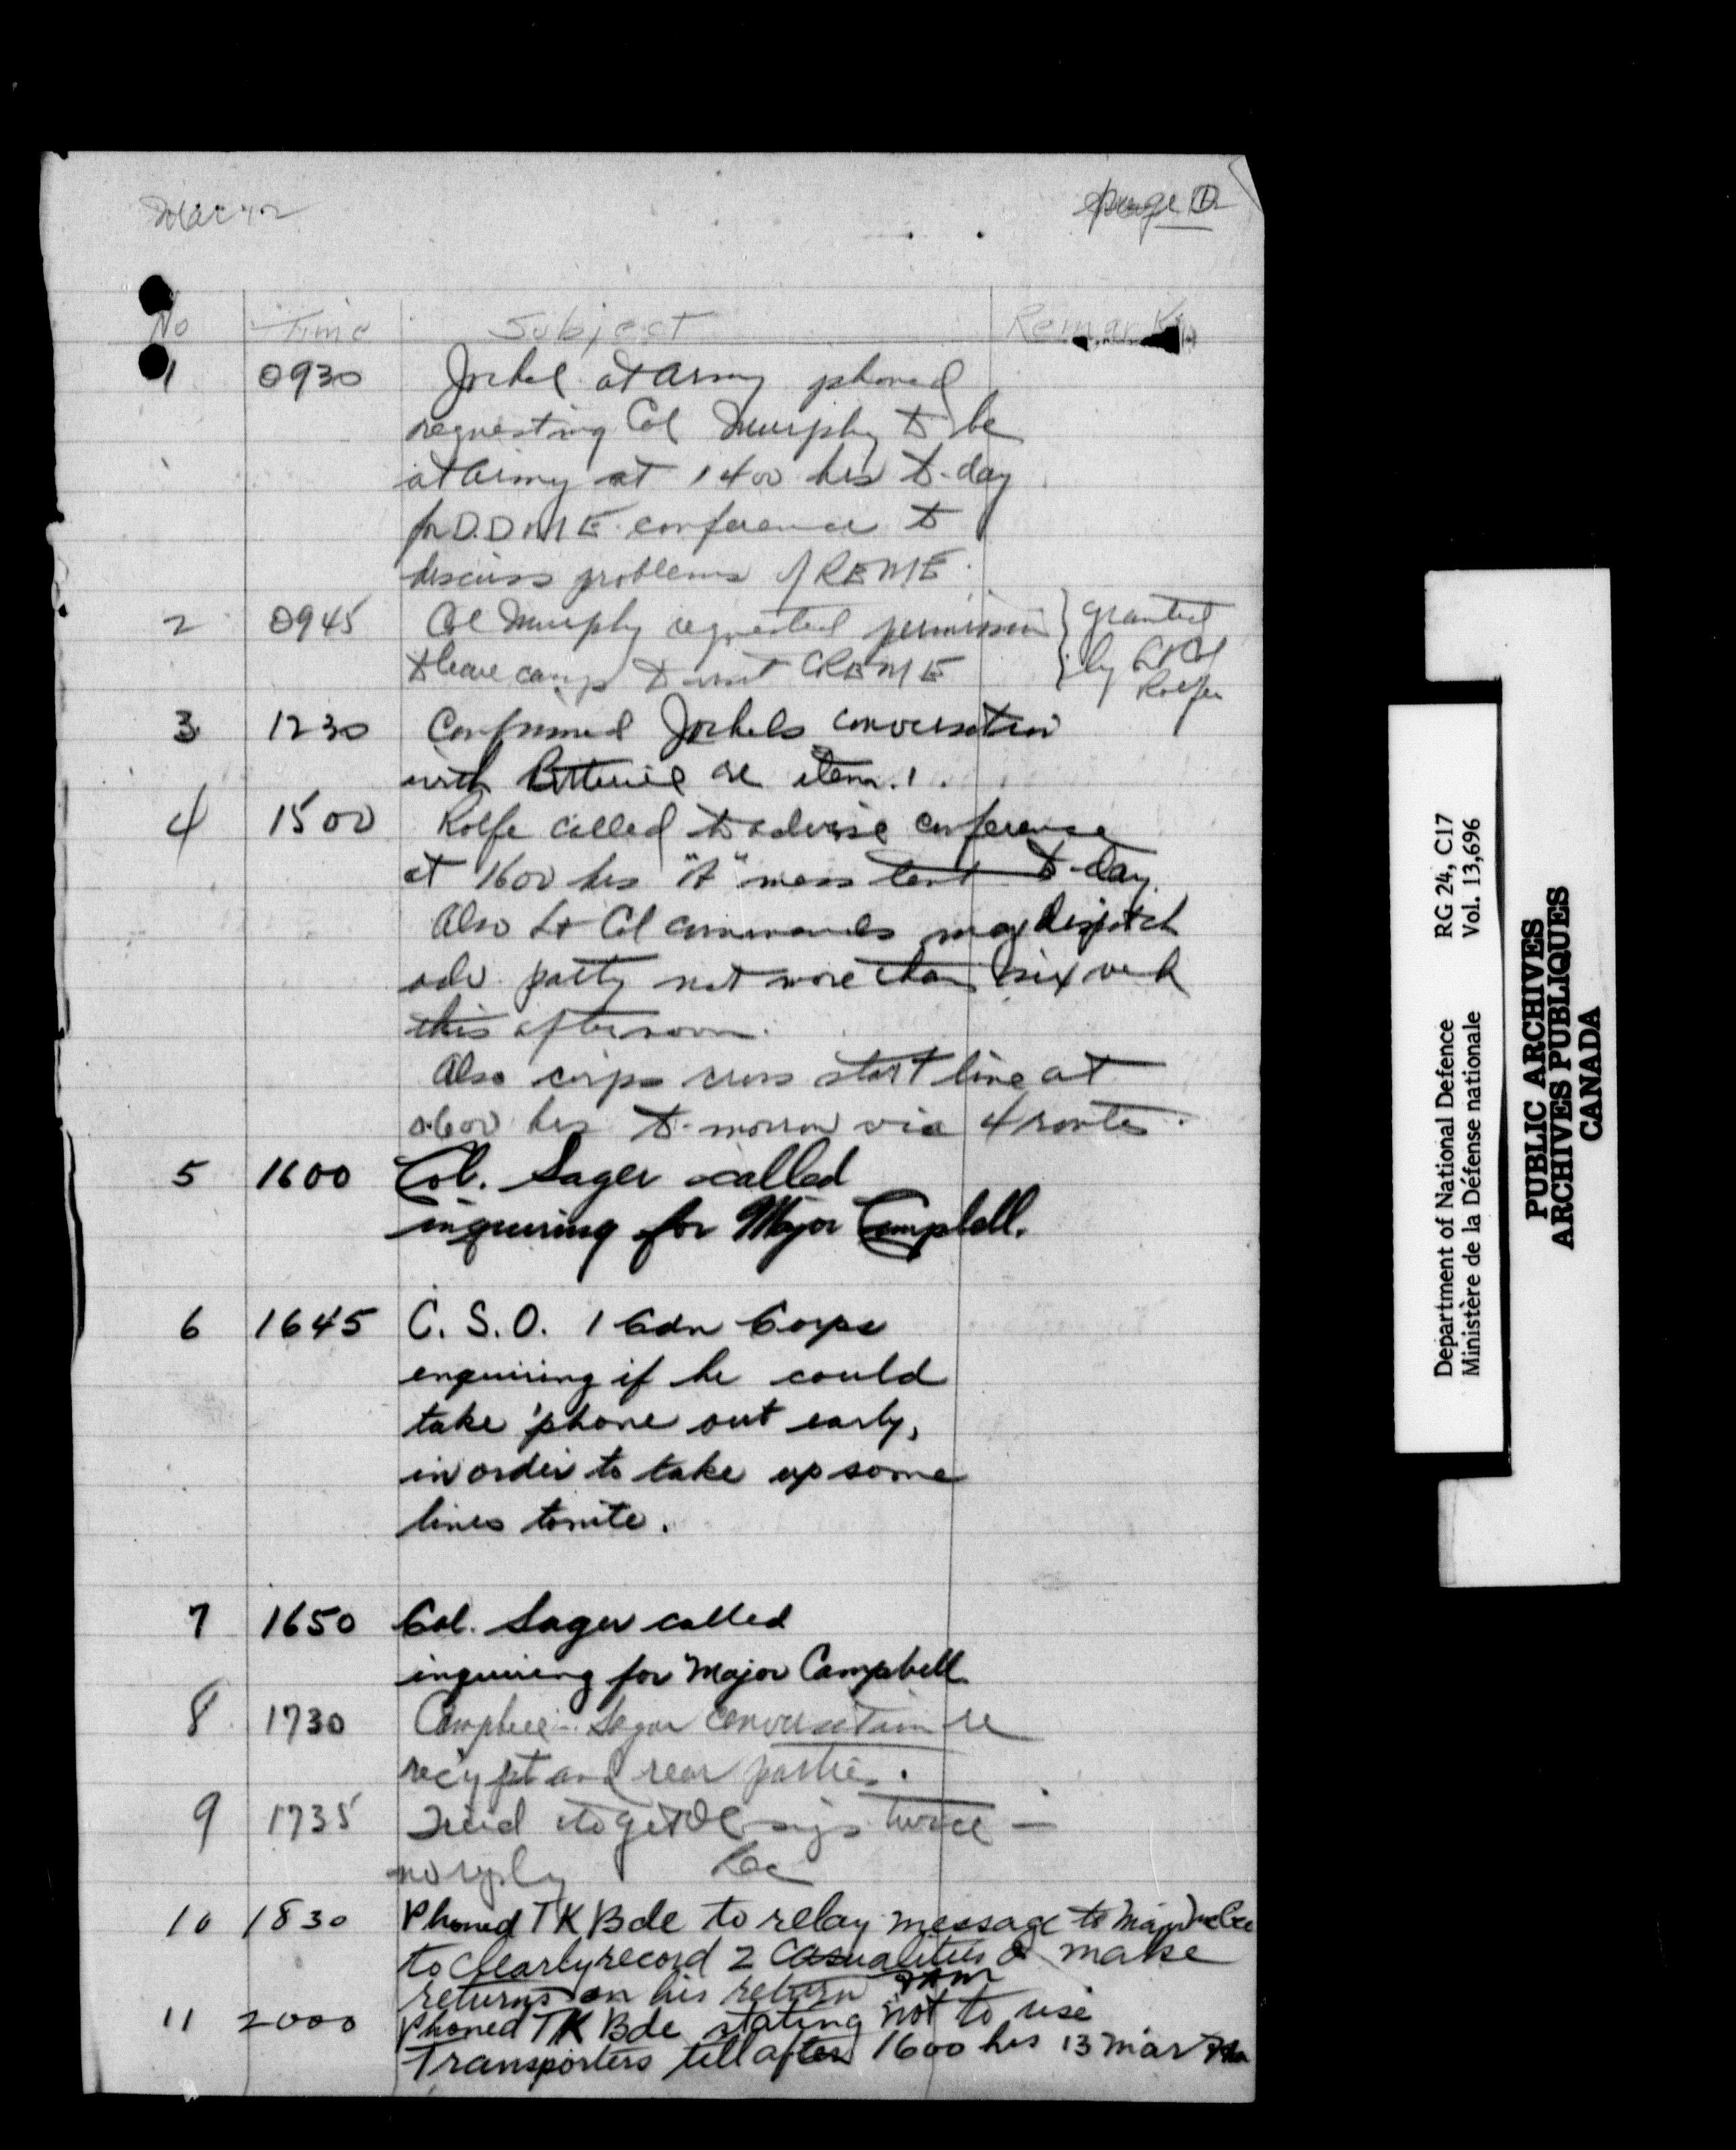 Mar 12
page 1
No Time Subject Remarks
1 0930 Jockel at Army phoned
requesting Col Murphy to be
at Army at 1400 hrs to-day
for D.D.M.E. conference to
discuss problems of REME.
2 0945 Col Murphy requested permission } granted
to leave camp to visit CREME } by Lt Col
Rolfe
3 1230 Confirmed Jockels conversation
with re item 1.
4 1500 Rolfe called to advise conference
at 1600 hrs "A" mess tent to-day.
Also Lt Col commands may dispatch
adv party not more than six veh
this afternoon.
Also corps cross start line at
0600 hrs to-morrow via 4 routes.
5 1600 Col. Sager called
inquiring for Major Campbell.
6 1645 C. S. O. 1 Cdn Corps
enquiring if he could
take 'phone out early,
in order to take up some
lines tonite.
7 1650 Col. Sager called
inquiring for Major Campbell
8 1730 Campbell - Sager conversation re
and rear parties.
9 1735 Tried to get sigs twice -
no reply
10 1830 Phoned TK Bde to relay message to Major
to clearly record 2 casualities & make
returns on his return
11 2000 Phoned TK Bde stating not to use
Transporters till after 1600 hrs 13 Mar
Department of National Defence RG 24, C17
Ministère de la Défense nationale Vol. 13,696
PUBLIC ARCHIVES
ARCHIVES PUBLIQUES
CANADA